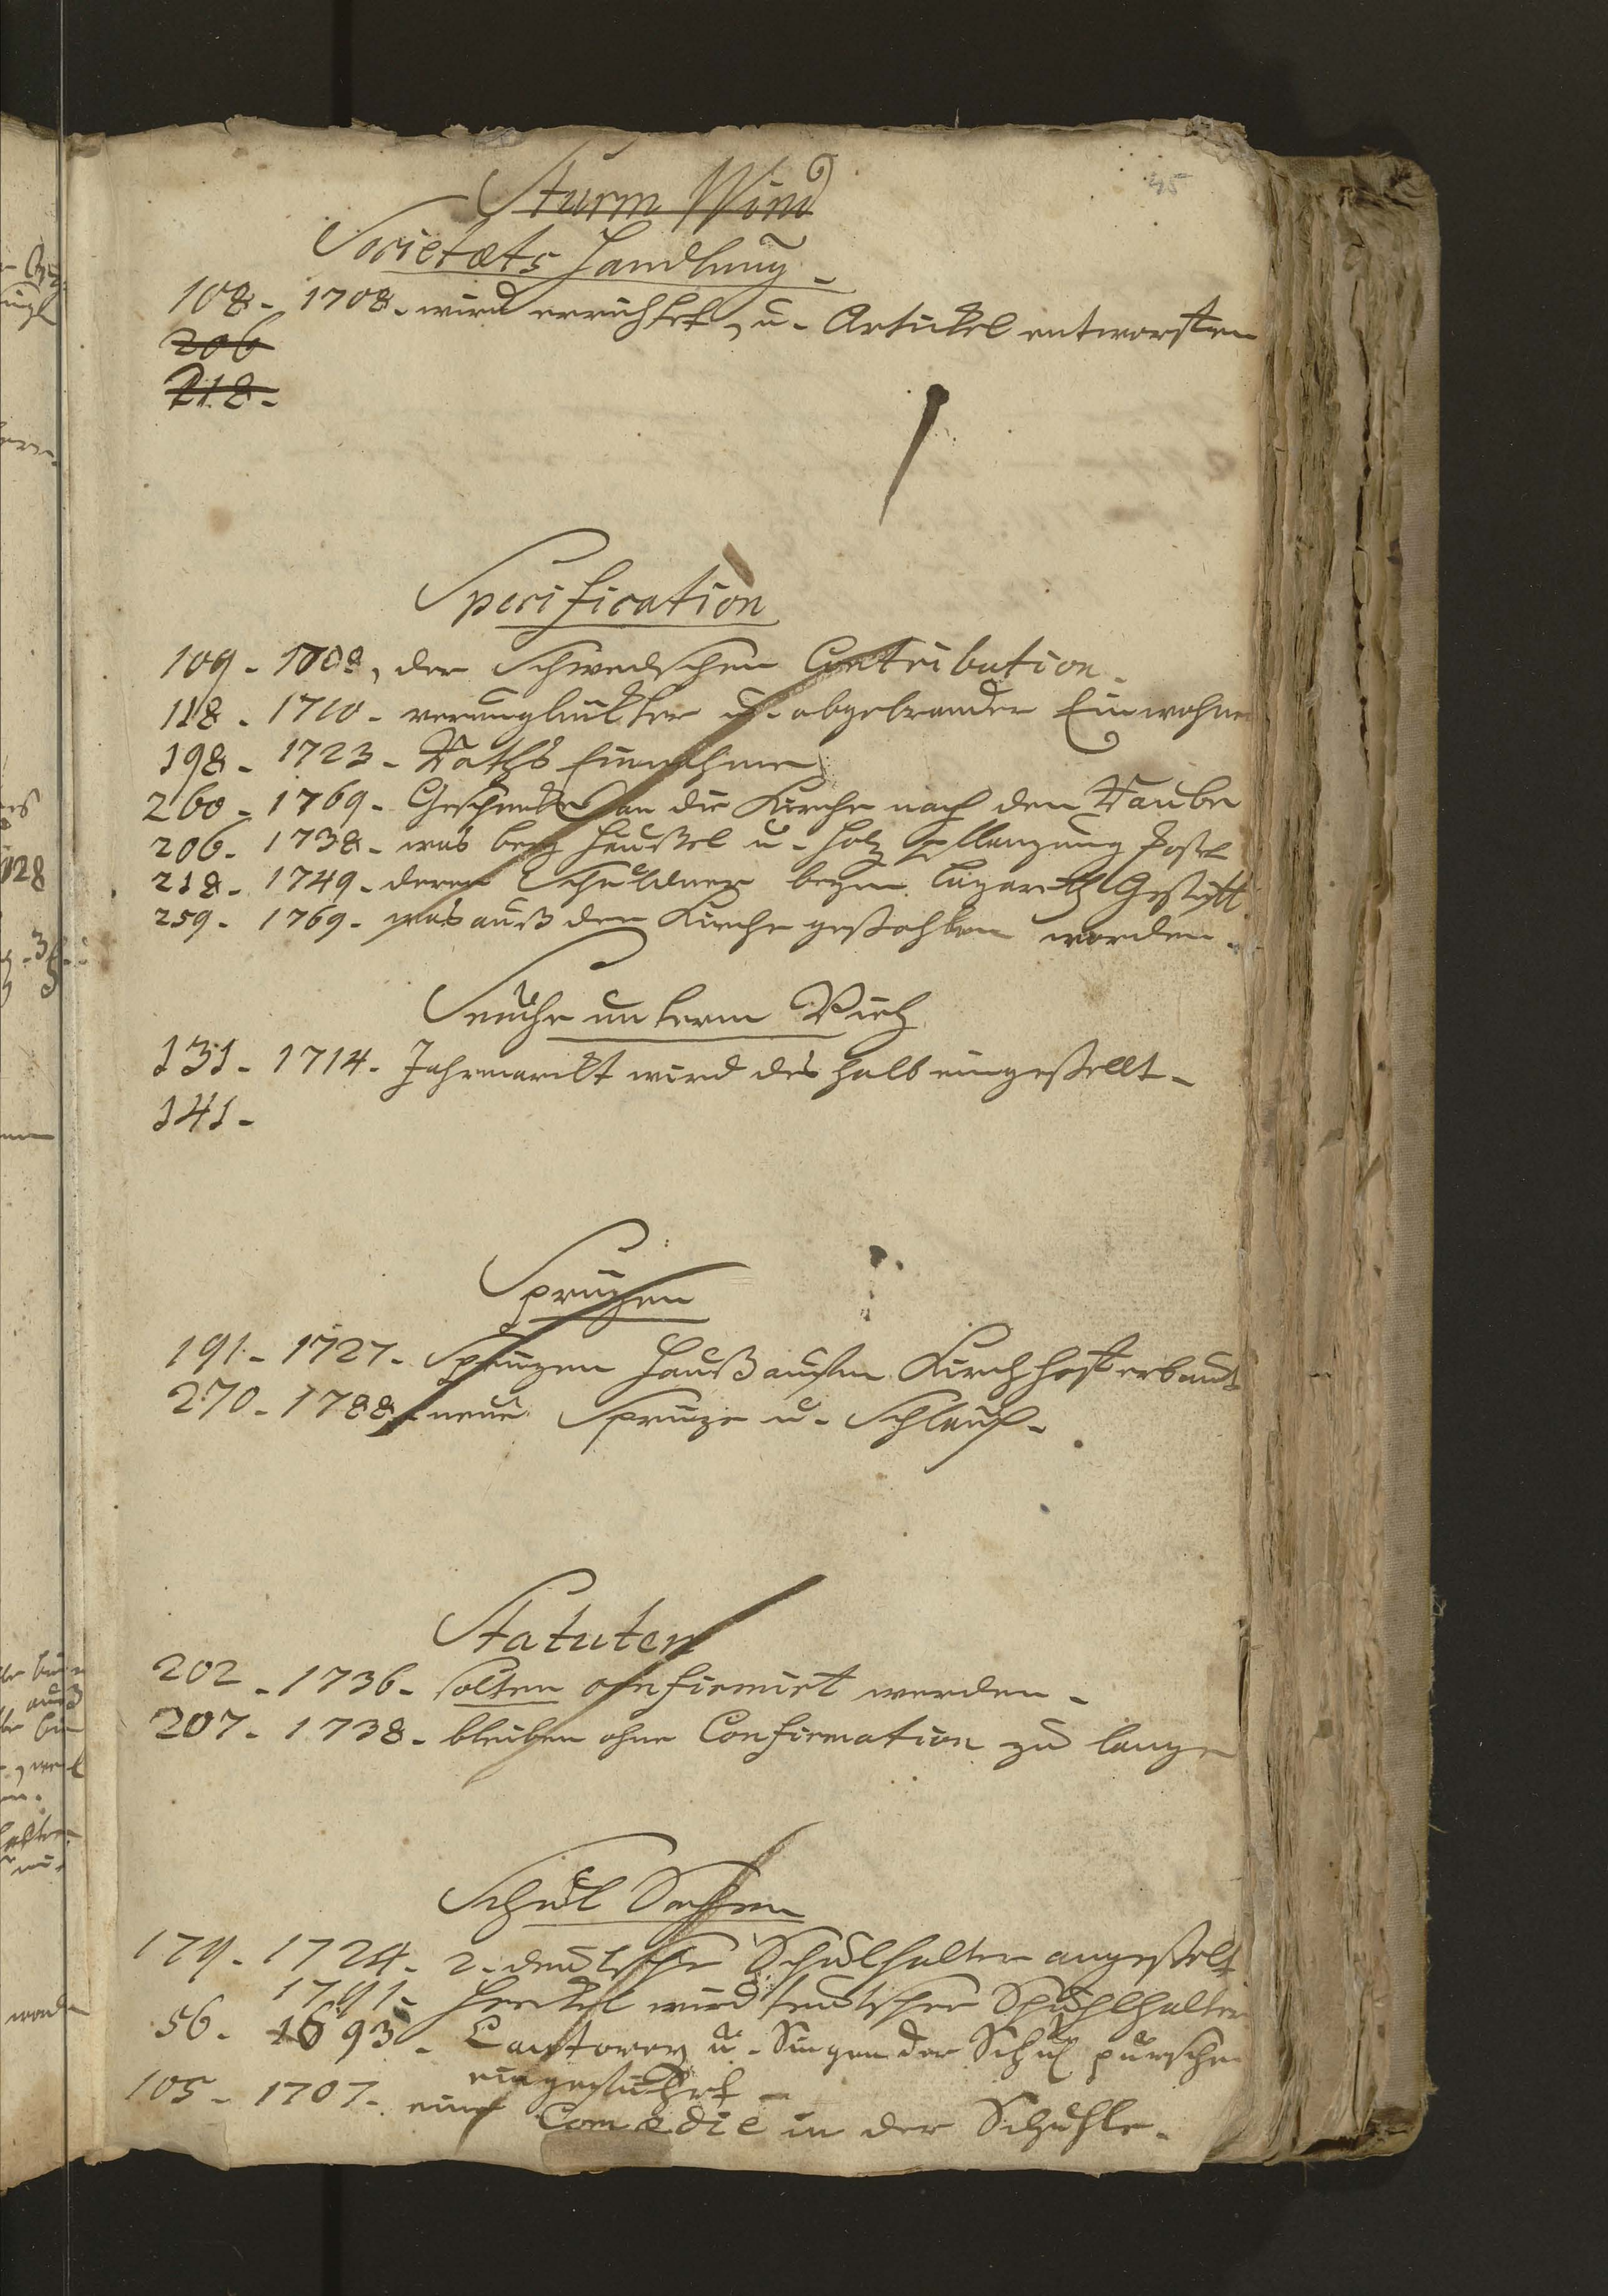 45
Sturm Wind
Societæts Handlung
108 - 1708 - wird errichtet, u. Artickel entworffen
206
218 -
Specification
109 - 1708, der Schwedschen Contribution.
118 - 1710 - verunglückter u. abgebrander Einwohner
198 - 1723 - Raths Einnahme
260 - 1769 - Geschencke an die Kirche nach dem Raube
206 - 1738 - was beym u. Holz Pflanzung kostet
218 - 1749 - derer Schuldner beym Lazareth Gestifft
259 - 1769 - was auß der Kirche gestohlen worden.
Seuche unterm Vieh
131 - 1714 - Jahrmarckt wird des halb eingestellt -
141 -
Sprützen
191 - 1727 - Sprützen Hauß aufm Kirchhoff erbaut
270 - 1788 - neue Sprütze u. Schlauch -
Statuten
202 - 1736 - solten confirmirt werden -
207 - 1738 - bleiben ohne Confirmation zu lange
Schul Sachen
179 - 1724 - 2. deutsche Schulhalter angestelt
1791 - wird teutscher Schuhlhalter
56 - 1693 - Cantorey u. Singen der Schul pursche
eingeführt -
105 - 1707 - eine Comædie in der Schuhle -